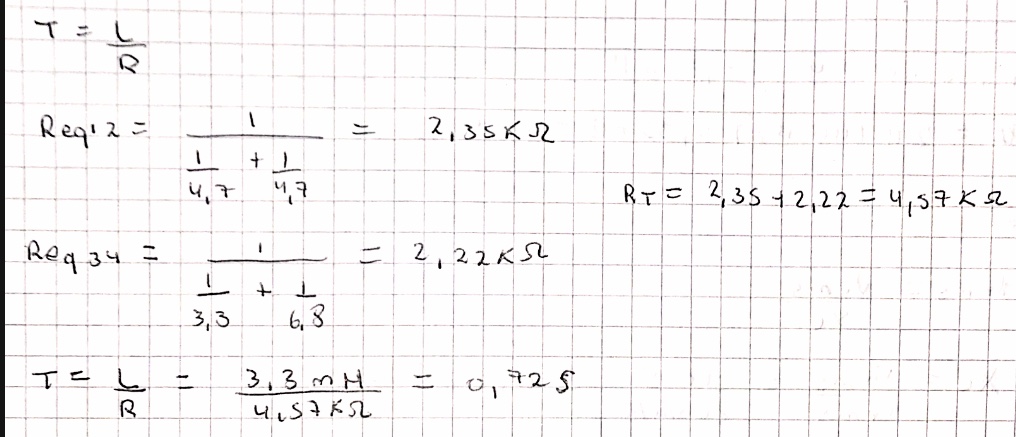 T = L/R
Req12 = 1/(1/4,7 + 1/4,7) = 2,35KΩ
RT = 2,35 + 2,22 = 4,57KΩ
Req34 = 1/(1/3,3 + 1/6,8) = 2,22KΩ
T = L/R = 3,3mH/4,57KΩ = 0,72S